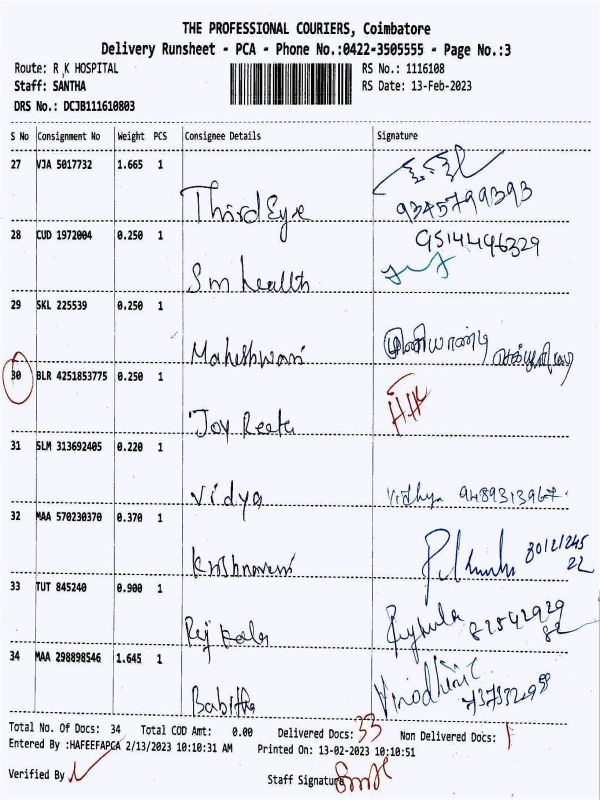 THE PROFESSIONAL COURIERS, Coimbatore
Delivery Runsheet - PCA - Phone No.:0422-3505555 - Page No.:3
Route: R K HOSPITAL RS No.: 1116108
Staff: SANTHA RS Date: 13-Feb-2023
DRS No.: DCJB111610803
S No Consignment No Weight PCS Consignee Details Signature
27 VJA 5017732 1.665 1
Third Eye 9345799393
28 CUD 1972004 0.250 1 9514496329
Sm health
29 SKL 225539 0.250 1
Maheshwari முனியாண்டி
30 BLR 4251853775 0.250 1
Joy Reeta
31 SLM 313692405 0.220 1
Vidya Vidhya 9489313967
32 MAA 570230370 0.370 1
Krishnaveni
33 TUT 845240 0.900 1
Rej kala
34 MAA 298898546 1.645 1
Babitha
Total No. Of Docs: 34 Total COD Amt: 0.00 Delivered Docs: 33 Non Delivered Docs: 1
Entered By :HAFEEFAPCA 2/13/2023 10:10:31 AM Printed On: 13-02-2023 10:10:51
Verified By
Staff Signature